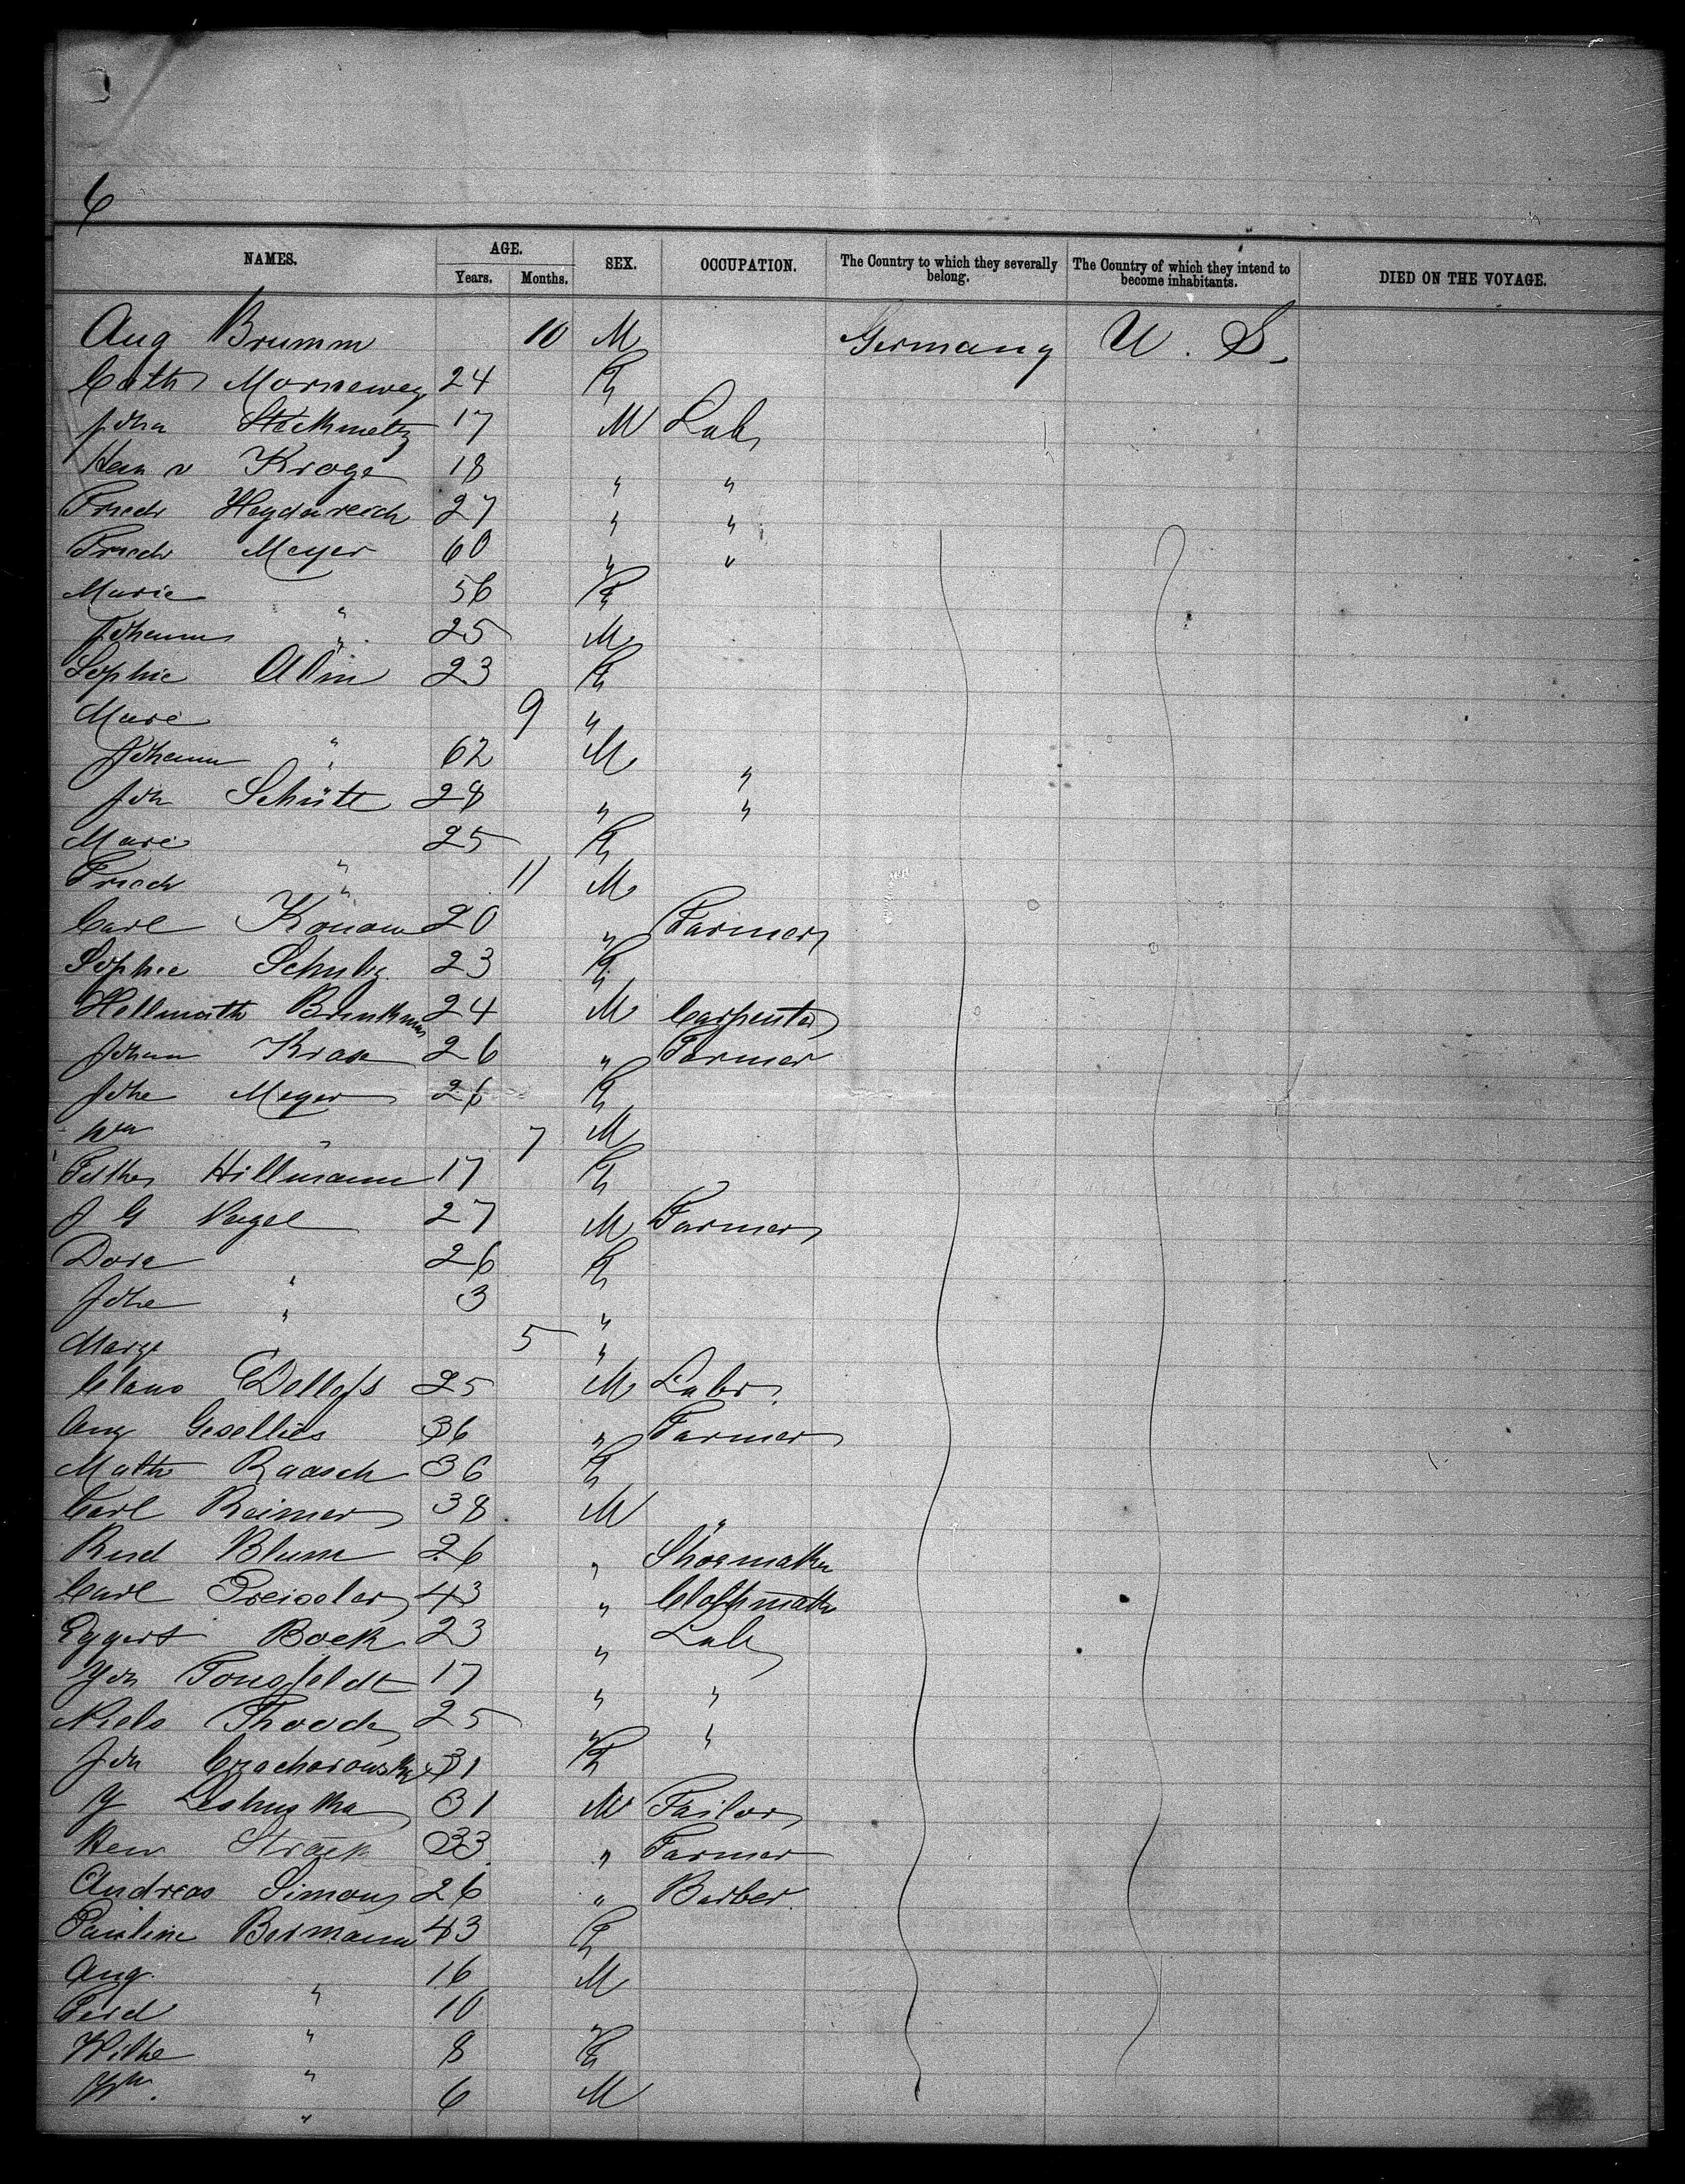 6
NAMES. AGE. Years. Months. SEX. OCCUPATION. The Country to which they severally belong. The Country of which they intend to become inhabitants. DIED ON THE VOYAGE.
Aug Brumm 10 M Germany U. S.
Cath Morneweg 24 F
John Steckmetz 17 M Lab
v Kroge 18 " "
Friedr Heydenreich 27 " "
Friedr Meyer 60 " "
Marie " 56 F
Johann " 25 M
Sophie Alm 23 F
Marie " 9 "
Johann " 62 M "
Joh Schütt 28 " "
Marie " 25 F
Friedr " 11 M
Carl Konow 20 " Farmer
Sophie Schulz 23 F
Hellmuth Brinkman 24 M Carpenter
Johann 26 " Farmer
Johe Meyer 26 F
Wm " 7 M
Hillmann 17 F
J G Nagel 27 M Farmer
Dora " 26 F
Johe " 3 "
Marg " 5 "
Claus Dellofs 25 M Labr
Aug Gesellies 36 " Farmer
Math Raasch 36 F
Carl Reimer 38 M "
Rud Blum 26 " Shoemaker
Carl Preiseler 43 " Clothmaker
Eggert Bock 23 " Lab
Joh Tongfeldt 17 " "
Niels Thoode 25 " "
Joh Czacharowsky 31 F
31 M Tailor
Hein Strack 33 " Farmer
Andreas Simons 26 " Barber
Pauline Bermann 43 F
Aug. " 16 M
Ferd " 10 "
Wilhe " 8 F
Wm. " 6 M